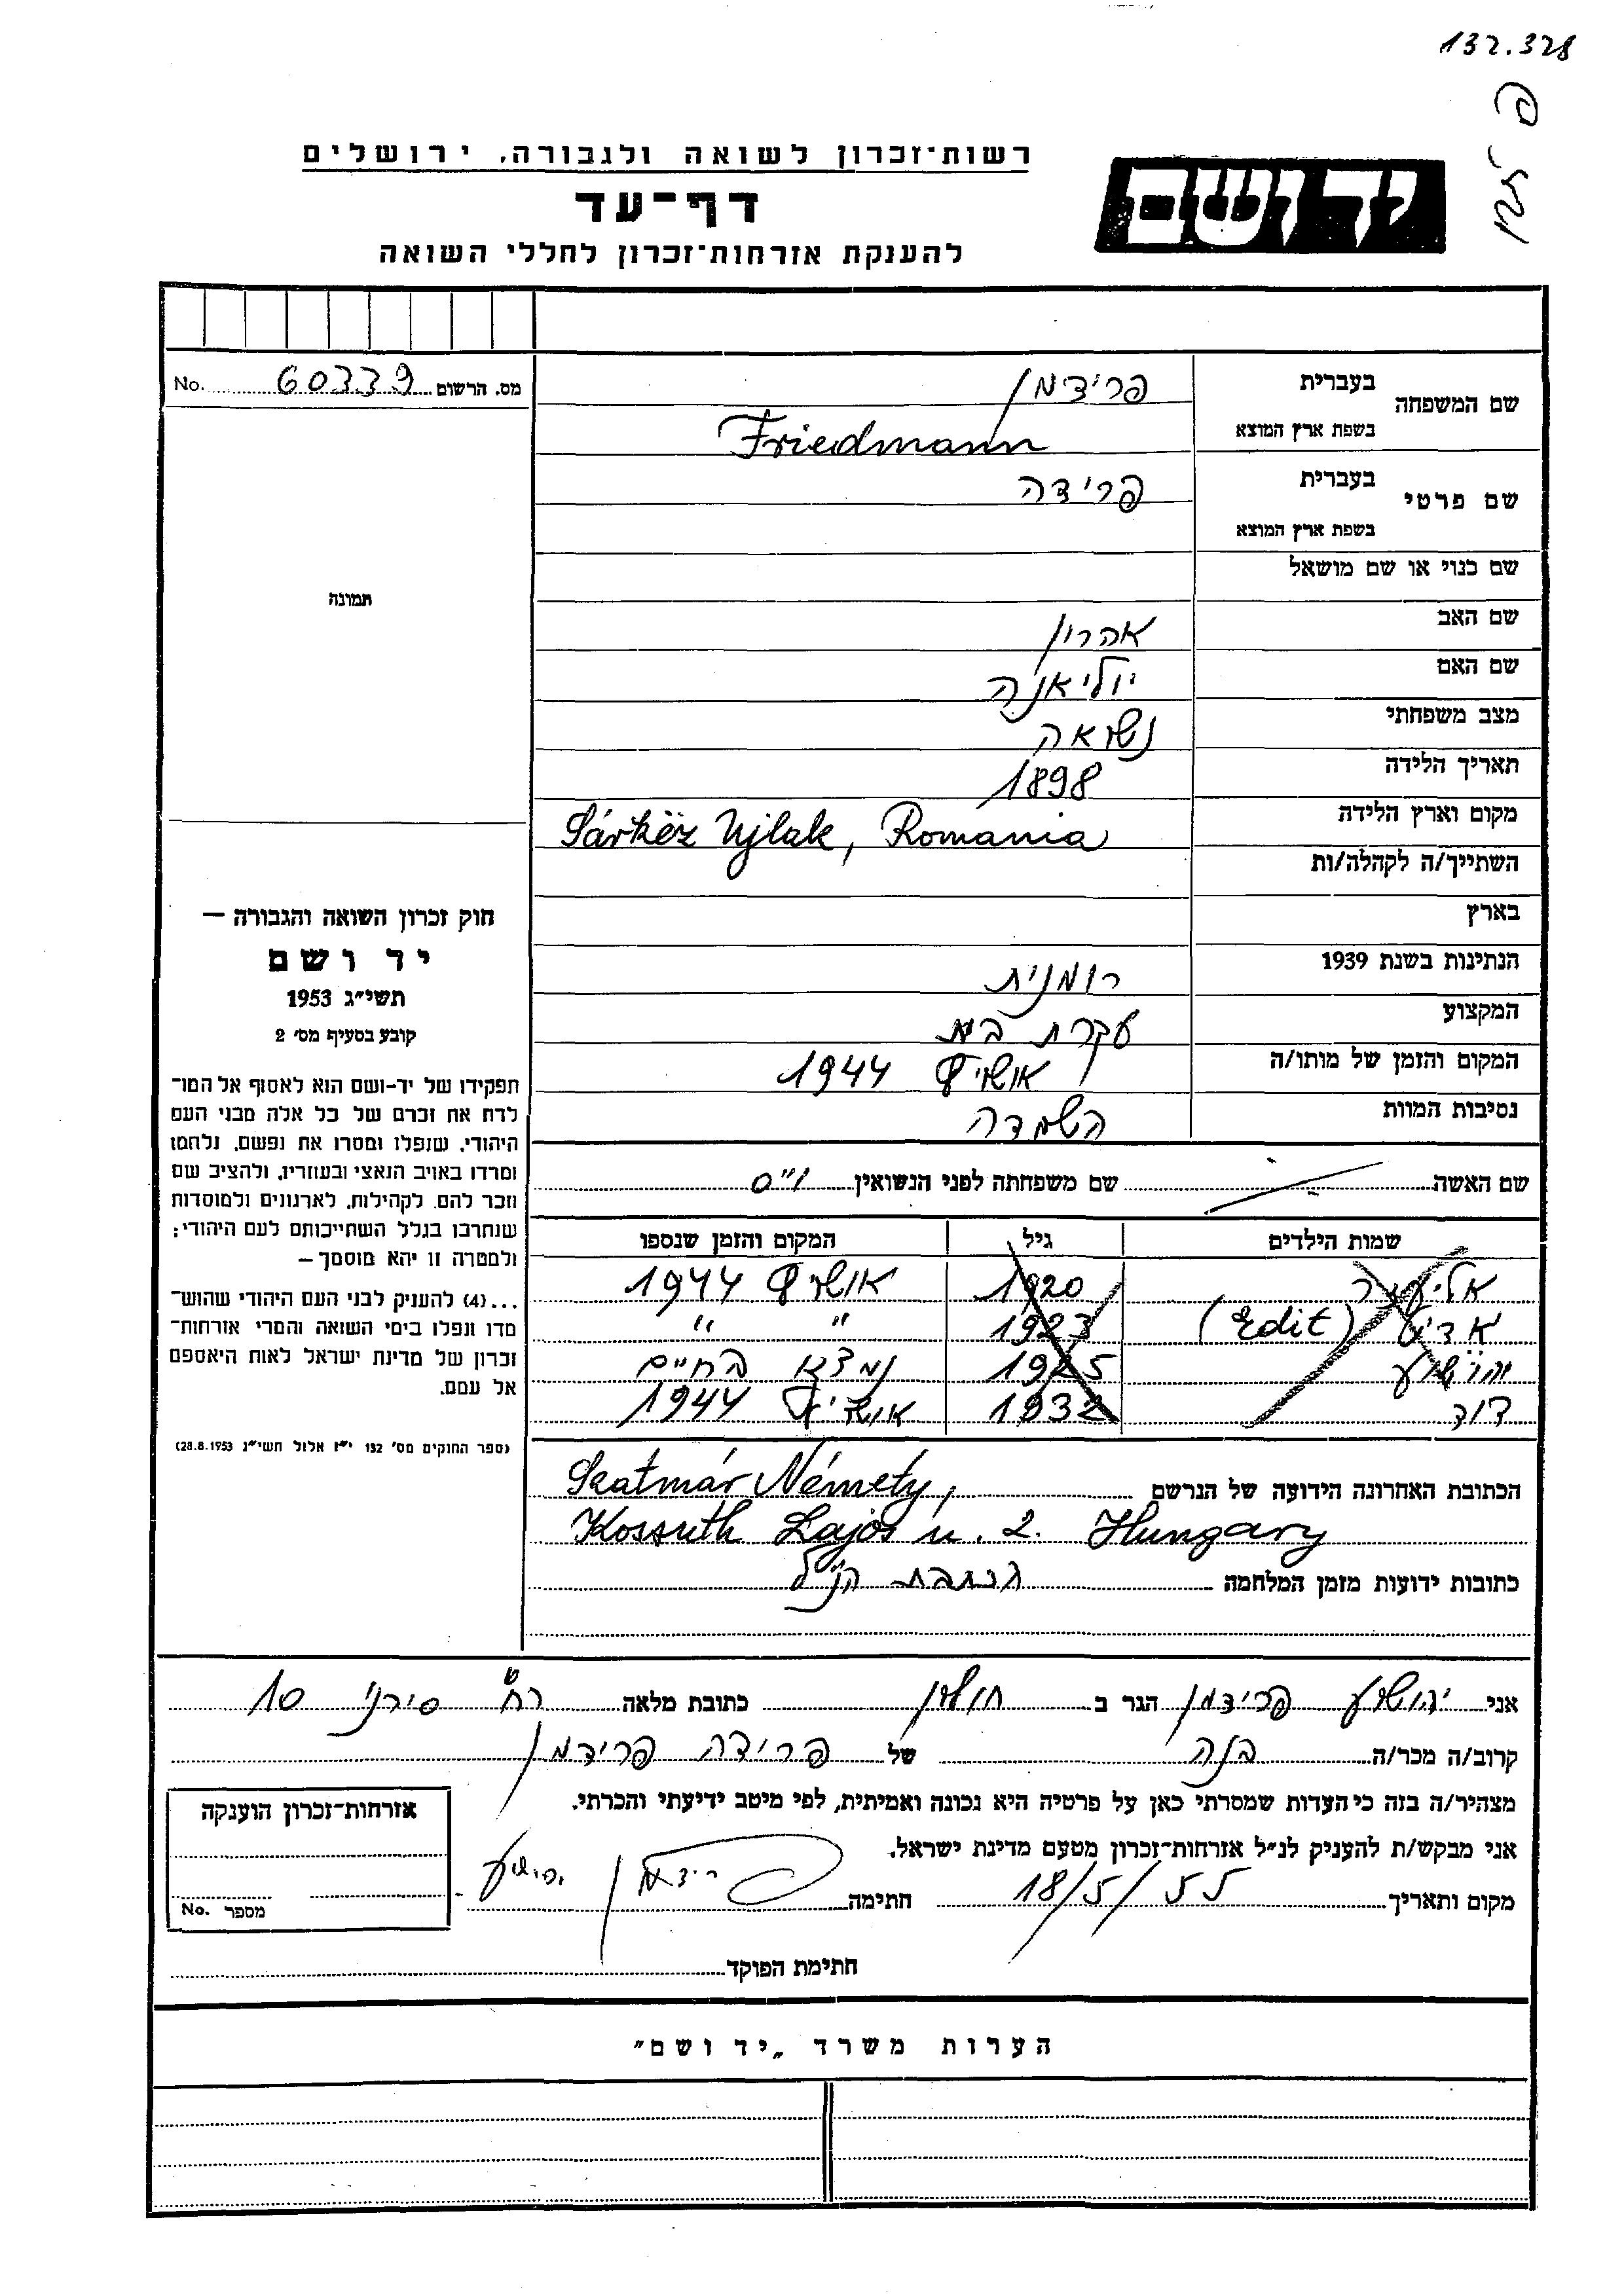 132.328
רשות־זכרון לשואה ולגבורה, ירושלים
יד ושם
דף־עד
להענקת אזרחות־זכרון לחללי השואה
מס. הרשום 60339 No.
תמונה
חוק זכרון השואה והגבורה —
יד ושם
תשי״ג 1953
קובע בסעיף מס׳ 2
תפקידו של יד-ושם הוא לאסוף אל המו־
לדת את זכרם של כל אלה מבני העם
היהודי, שנפלו ומסרו את נפשם, נלחמו
ומרדו באויב הנאצי ובעוזריו, ולהציב שם
וזכר להם, לקהילות, לארגונים ולמוסדות
שנחרבו בגלל השתייכותם לעם היהודי;
ולמטרה זו יהא מוסמך—
...(4) להעניק לבני העם היהודי שהוש־
מדו ונפלו בימי השואה והמרי אזרחות־
זכרון של מדינת ישראל לאות היאספם
אל עמם.
(ספר החוקים מס׳ 132 י״ז אלול תשי״ג 28.8.1953)
שם המשפחה בעברית פרידמן
בשפת ארץ המוצא Friedmann
שם פרטי בעברית פרידה
בשפת ארץ המוצא
שם כנוי או שם מושאל
שם האב אהרון
שם האם יוליאנה
מצב משפחתי נשואה
תאריך הלידה 1898
מקום וארץ הלידה Sárköz Ujlak, Romania
השתייך/ה לקהלה/ות
בארץ
הנתינות בשנת 1939 רומנית
המקצוע עקרת בית
המקום והזמן של מותו/ה אושויץ 1944
נסיבות המוות השמדה
שם האשה שם משפחתה לפני הנשואין
שמות הילדים גיל המקום והזמן שנספו
אליעזר 1920 אושויץ 1944
אדית (Edit) 1923 " "
יהושע 1925 נמצא בחיים
דוד 1932 אושויץ 1944
הכתובת האחרונה הידועה של הנרשם Szatmár Némety,
Kossuth Lajos u. 2. Hungary
כתובות ידועות מזמן המלחמה כתובת הנ״ל
אני יהושע פרידמן הגר ב חולון כתובת מלאה רח׳ סירני 10
קרוב/ה מכר/ה בנה של פרידה פרידמן
מצהיר/ה בזה כי העדות שמסרתי כאן על פרטיה היא נכונה ואמיתית, לפי מיטב ידיעתי והכרתי.
אני מבקש/ת להעניק לנ״ל אזרחות־זכרון מטעם מדינת ישראל.
מקום ותאריך 18/5/55 חתימה פרידמן יהושע
חתימת הפוקד
אזרחות־זכרון הוענקה
מספר No.
הערות משרד „יד ושם״